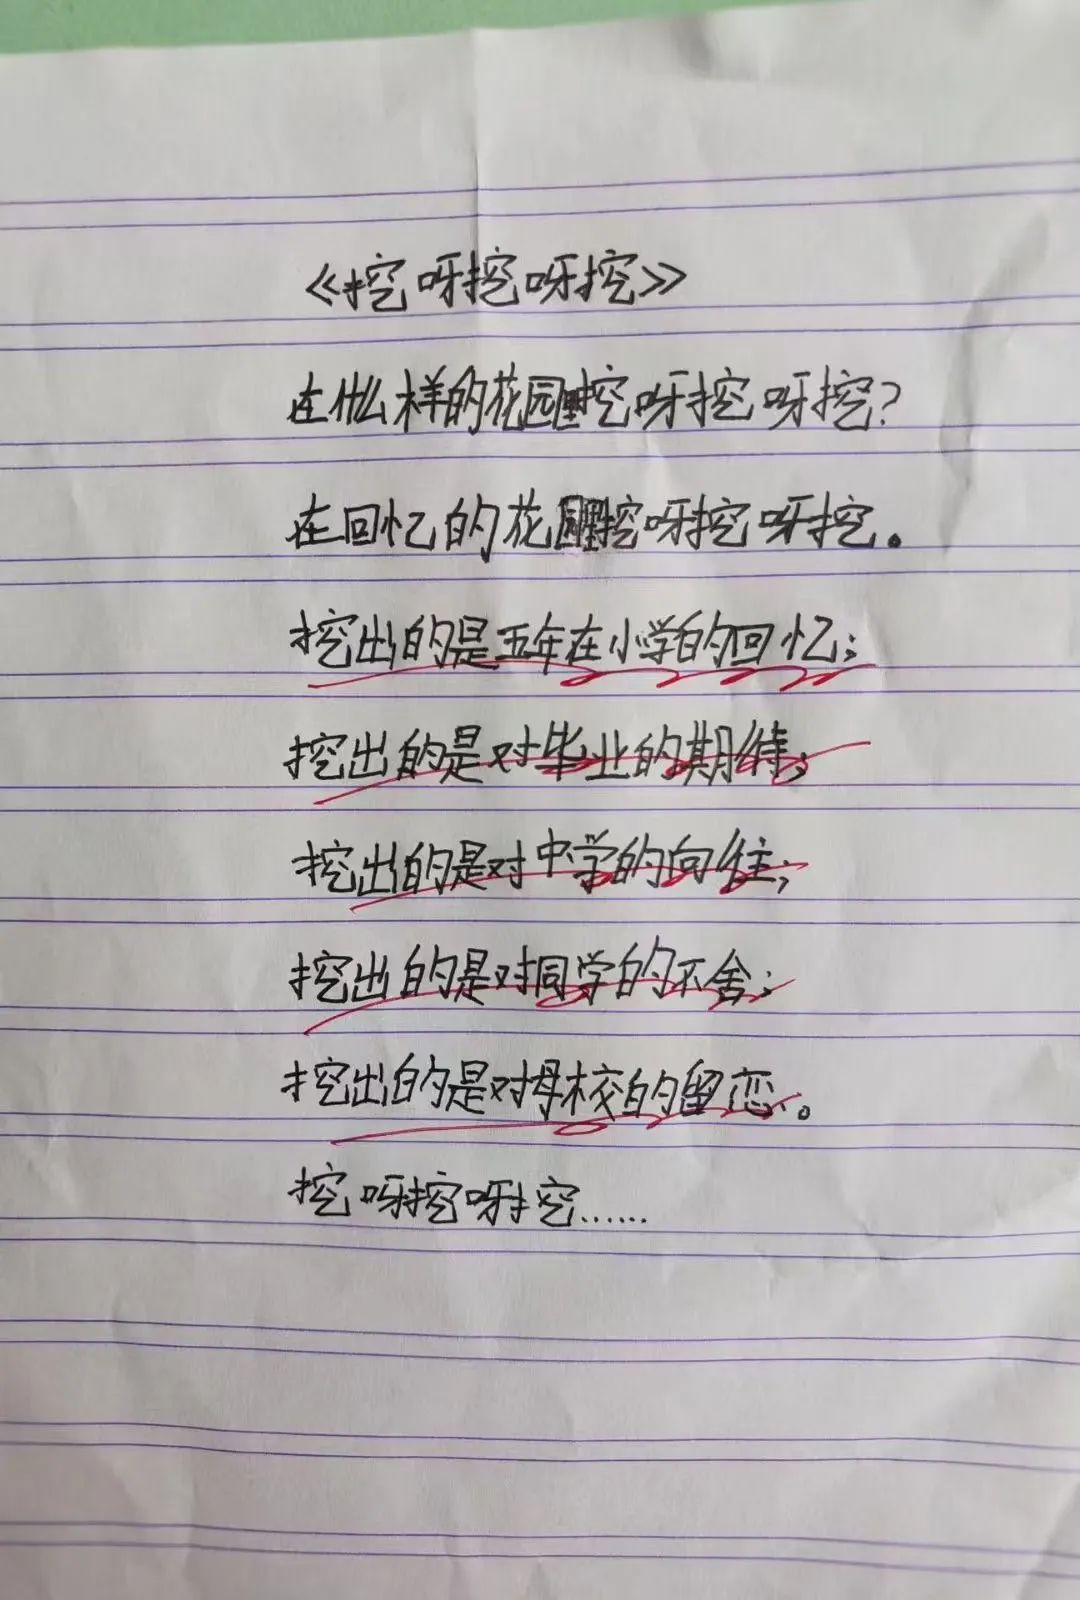 《挖呀挖呀挖》
在什么样的花园里挖呀挖呀挖？
在回忆的花园里挖呀挖呀挖。
挖出的是五年在小学的回忆；
挖出的是对毕业的期待；
挖出的是对中学的向往；
挖出的是对同学的不舍；
挖出的是对母校的留恋。
挖呀挖呀挖……